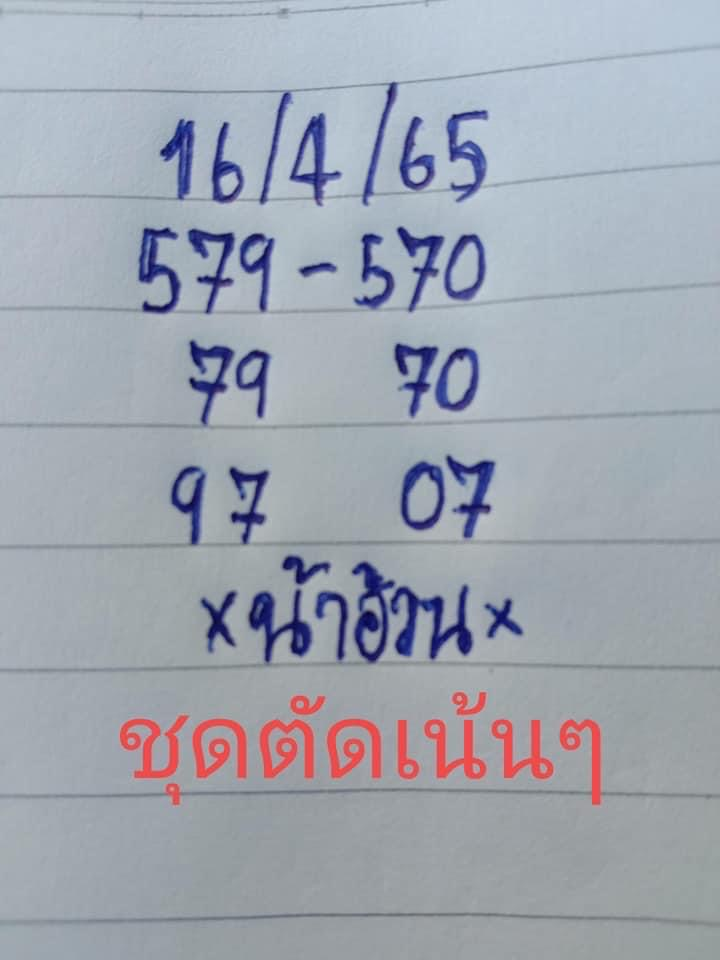 16/4/65
579-570
79 70
97 07
×น้าอ้วน×
ชุดตัดเน้นๆ